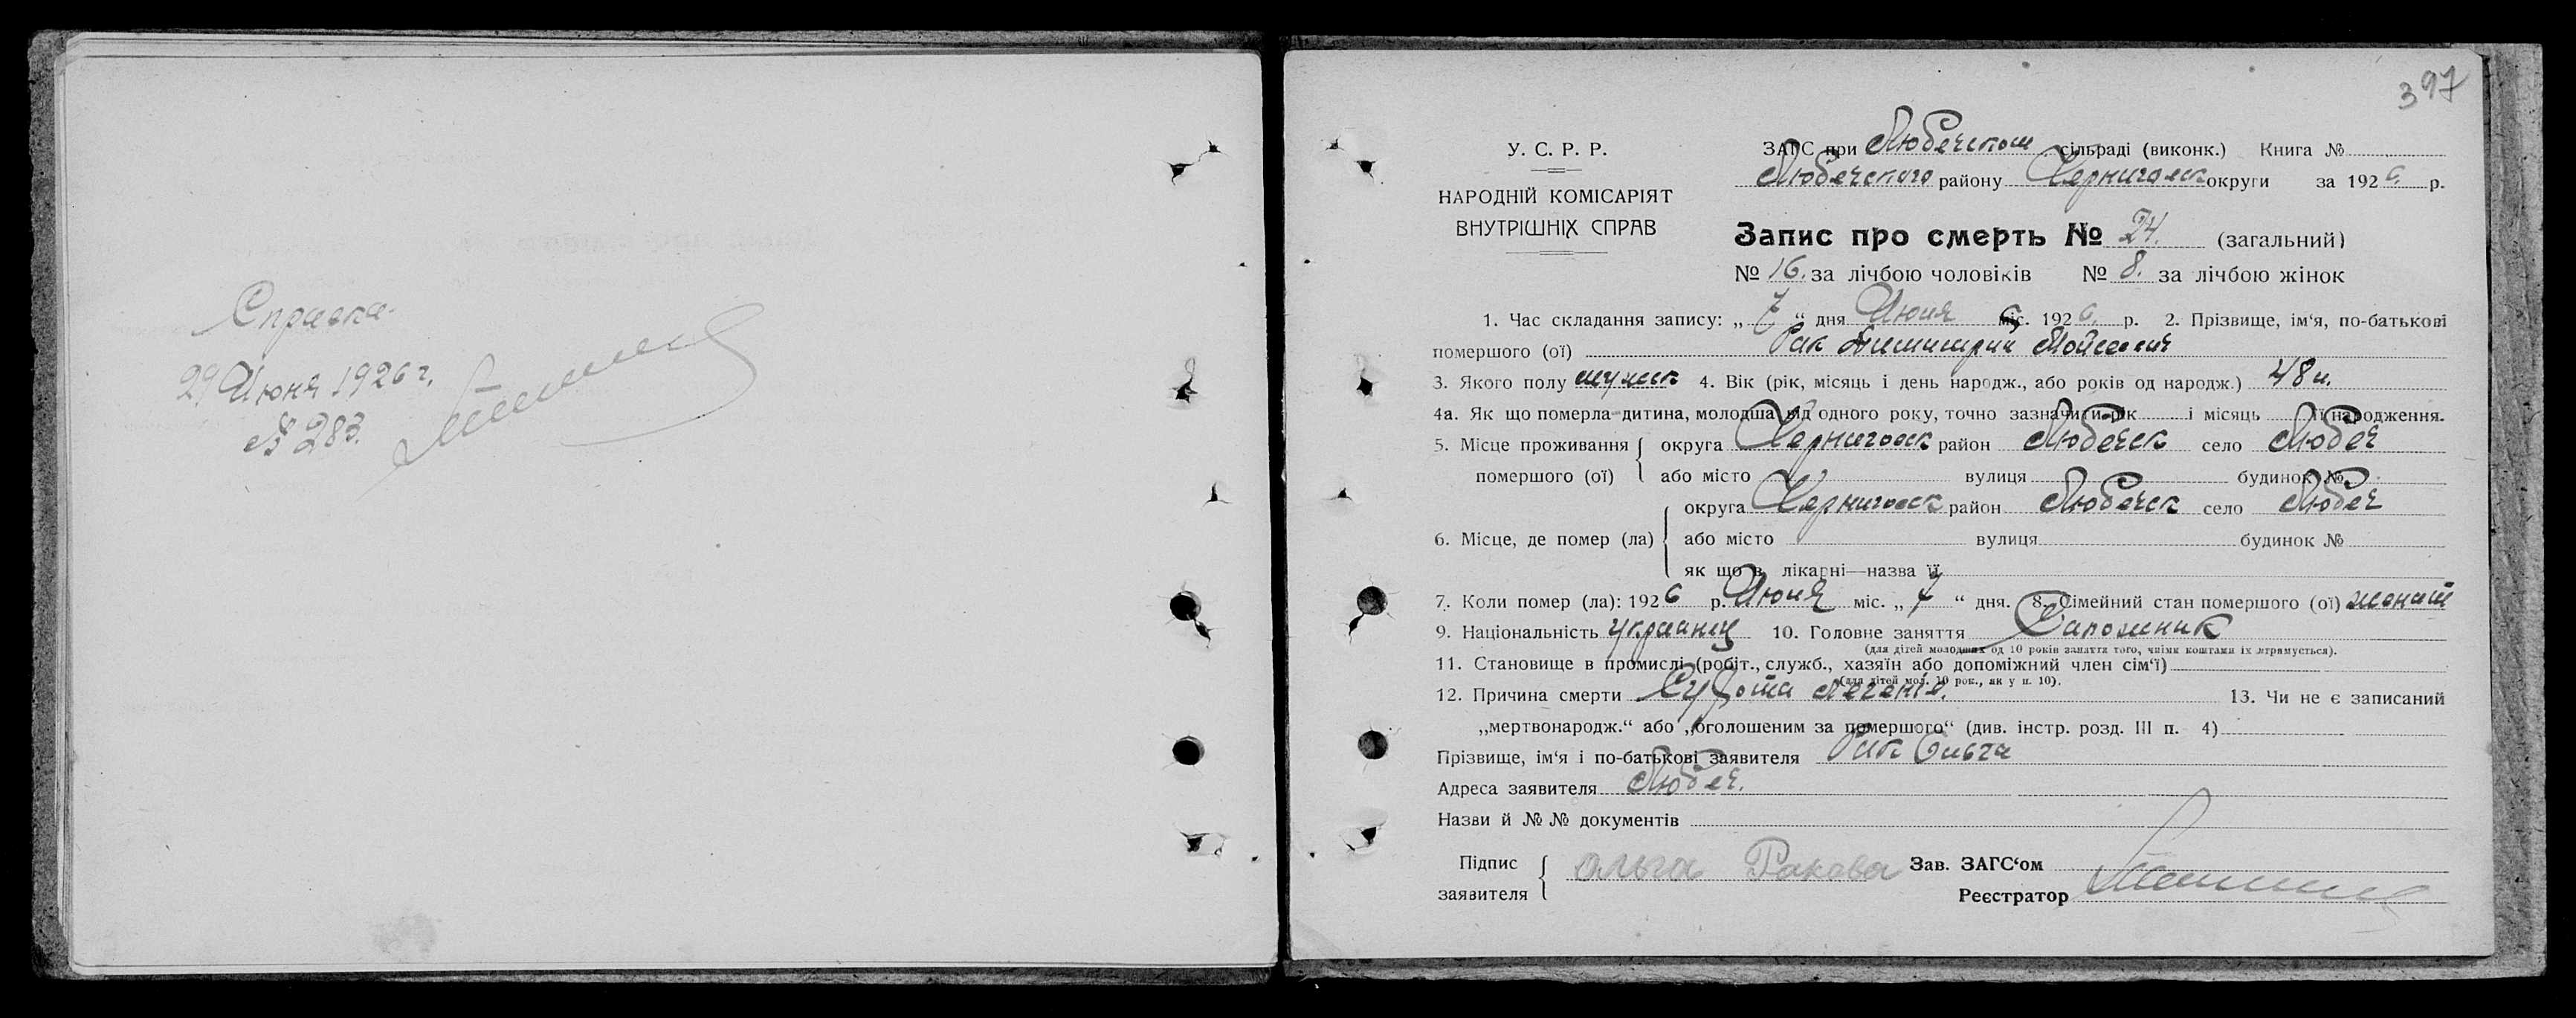 Справка
29 Июня 1926 г.
№ 283.
397
У. С. Р. Р.
НАРОДНІЙ КОМІСАРІЯТ
ВНУТРІШНІХ СПРАВ
ЗАГС при Любечском сільраді (виконк.) Книга №
Любечского району Черниговск округи за 1926. р.
Запис про смерть № 24. (загальний)
№ 16. за лічбою чоловіків № 8. за лічбою жінок
1. Час складання запису: „ 7 “ дня Июня міс. 1926. р. 2. Прізвище, ім‘я, по-батькові
помершого (ої) Рак Димитрий Мойсеевич
3. Якого полу мужск 4. Вік (рік, місяць і день народж., або років од народж.) 48 л.
4а. Як що померла дитина, молодша від одного року, точно зазначити рік і місяць її народження.
5. Місце проживання округа Черниговск район Любечск село Любеч
помершого (ої) або місто вулиця будинок №
округа Черниговск район Любечск село Любеч
6. Місце, де помер (ла) або місто вулиця будинок №
як що в лікарні—назва її
7. Коли помер (ла): 1926 р. Июня міс. „ 7 “ дня. 8. Сімейний стан помершого (ої) женат
9. Національність украинец 10. Головне заняття Сапожник
(для дітей молодших од 10 років заняття того, чиїми коштами їх утримується).
11. Становище в промислі (робіт., служб., хазяїн або допоміжний член сім‘ї)
(для дітей мол. 10 рок., як у п. 10).
12. Причина смерти 13. Чи не є записаний
„мертвонародж.“ або „оголошеним за помершого“ (див. інстр. розд. III п. 4)
Прізвище, ім‘я і по-батькові заявителя Рак Ольга
Адреса заявителя Любеч.
Назви й №№ документів
Підпис
заявителя
Ольга Ракова Зав. ЗАГС‘ом
Реєстратор